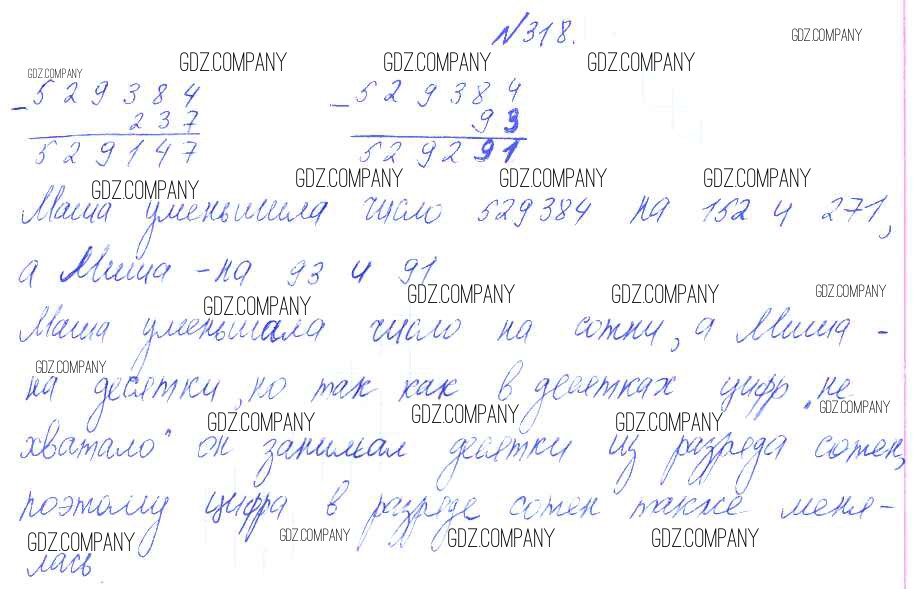 №318.
GDZ.COMPANY
GDZ.COMPANY GDZ.COMPANY GDZ.COMPANY
GDZ.COMPANY
– 529384 – 529384
237 93
529147 529291
GDZ.COMPANY GDZ.COMPANY GDZ.COMPANY GDZ.COMPANY
Маша уменьшила число 529384 на 152 и 271,
а Миша – на 93 и 91
GDZ.COMPANY GDZ.COMPANY GDZ.COMPANY GDZ.COMPANY
Маша уменьшала число на сотни, а Миша –
GDZ.COMPANY
на десятки, но так как в десятках цифр „не
GDZ.COMPANY GDZ.COMPANY GDZ.COMPANY GDZ.COMPANY
хватало" он занимал десятки из разряда сотен,
поэтому цифра в разряде сотен также меня-
GDZ.COMPANY GDZ.COMPANY GDZ.COMPANY GDZ.COMPANY
лась